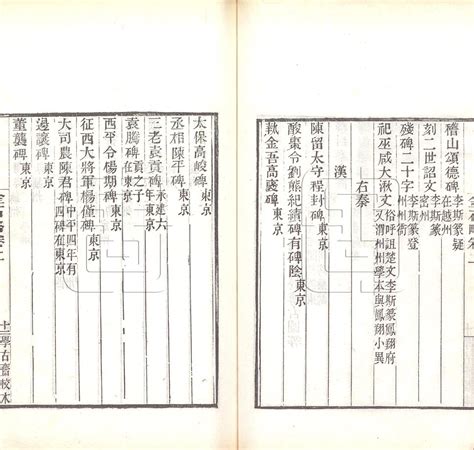 稽山頌德碑 李斯篆疑在越州
刻二世詔文 李斯篆密州
殘碑二十字 李斯篆登州
祀巫咸大湫文 俗呼詛楚文李斯篆鳳翔府又渭州州學本與鳳翔小異
右秦
漢
陳留太守程封碑 東京
酸棗令劉熊紀績碑有碑陰 東京
執金吾高碑 東京
太保高峻碑 東京
丞相陳平碑 東京
三老袁貢碑 永建六年東京
袁騰碑 貢之子在東京
西平令楊期碑 東京
征西大將軍楊僅碑 東京
大司農陳君碑 中平四年有四碑在東京
過讓碑 東京
董襲碑
學古齋校本